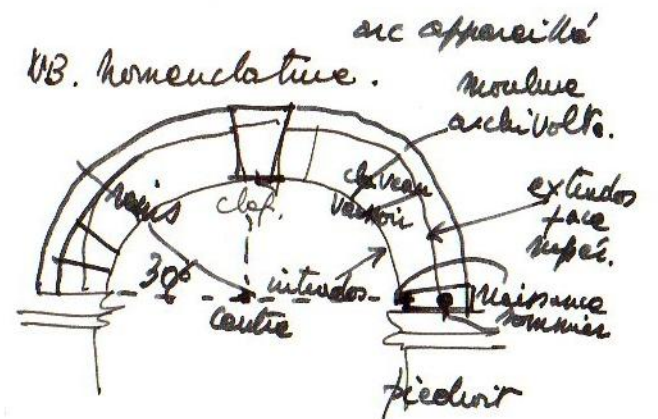 arc appareillé
NB. Nomenclature.
moulure
archivolte.
claveau
voussoir
extrados
face
supér.
reins
clef.
30°
intrados
centre
Naissance
sommier
piedroit